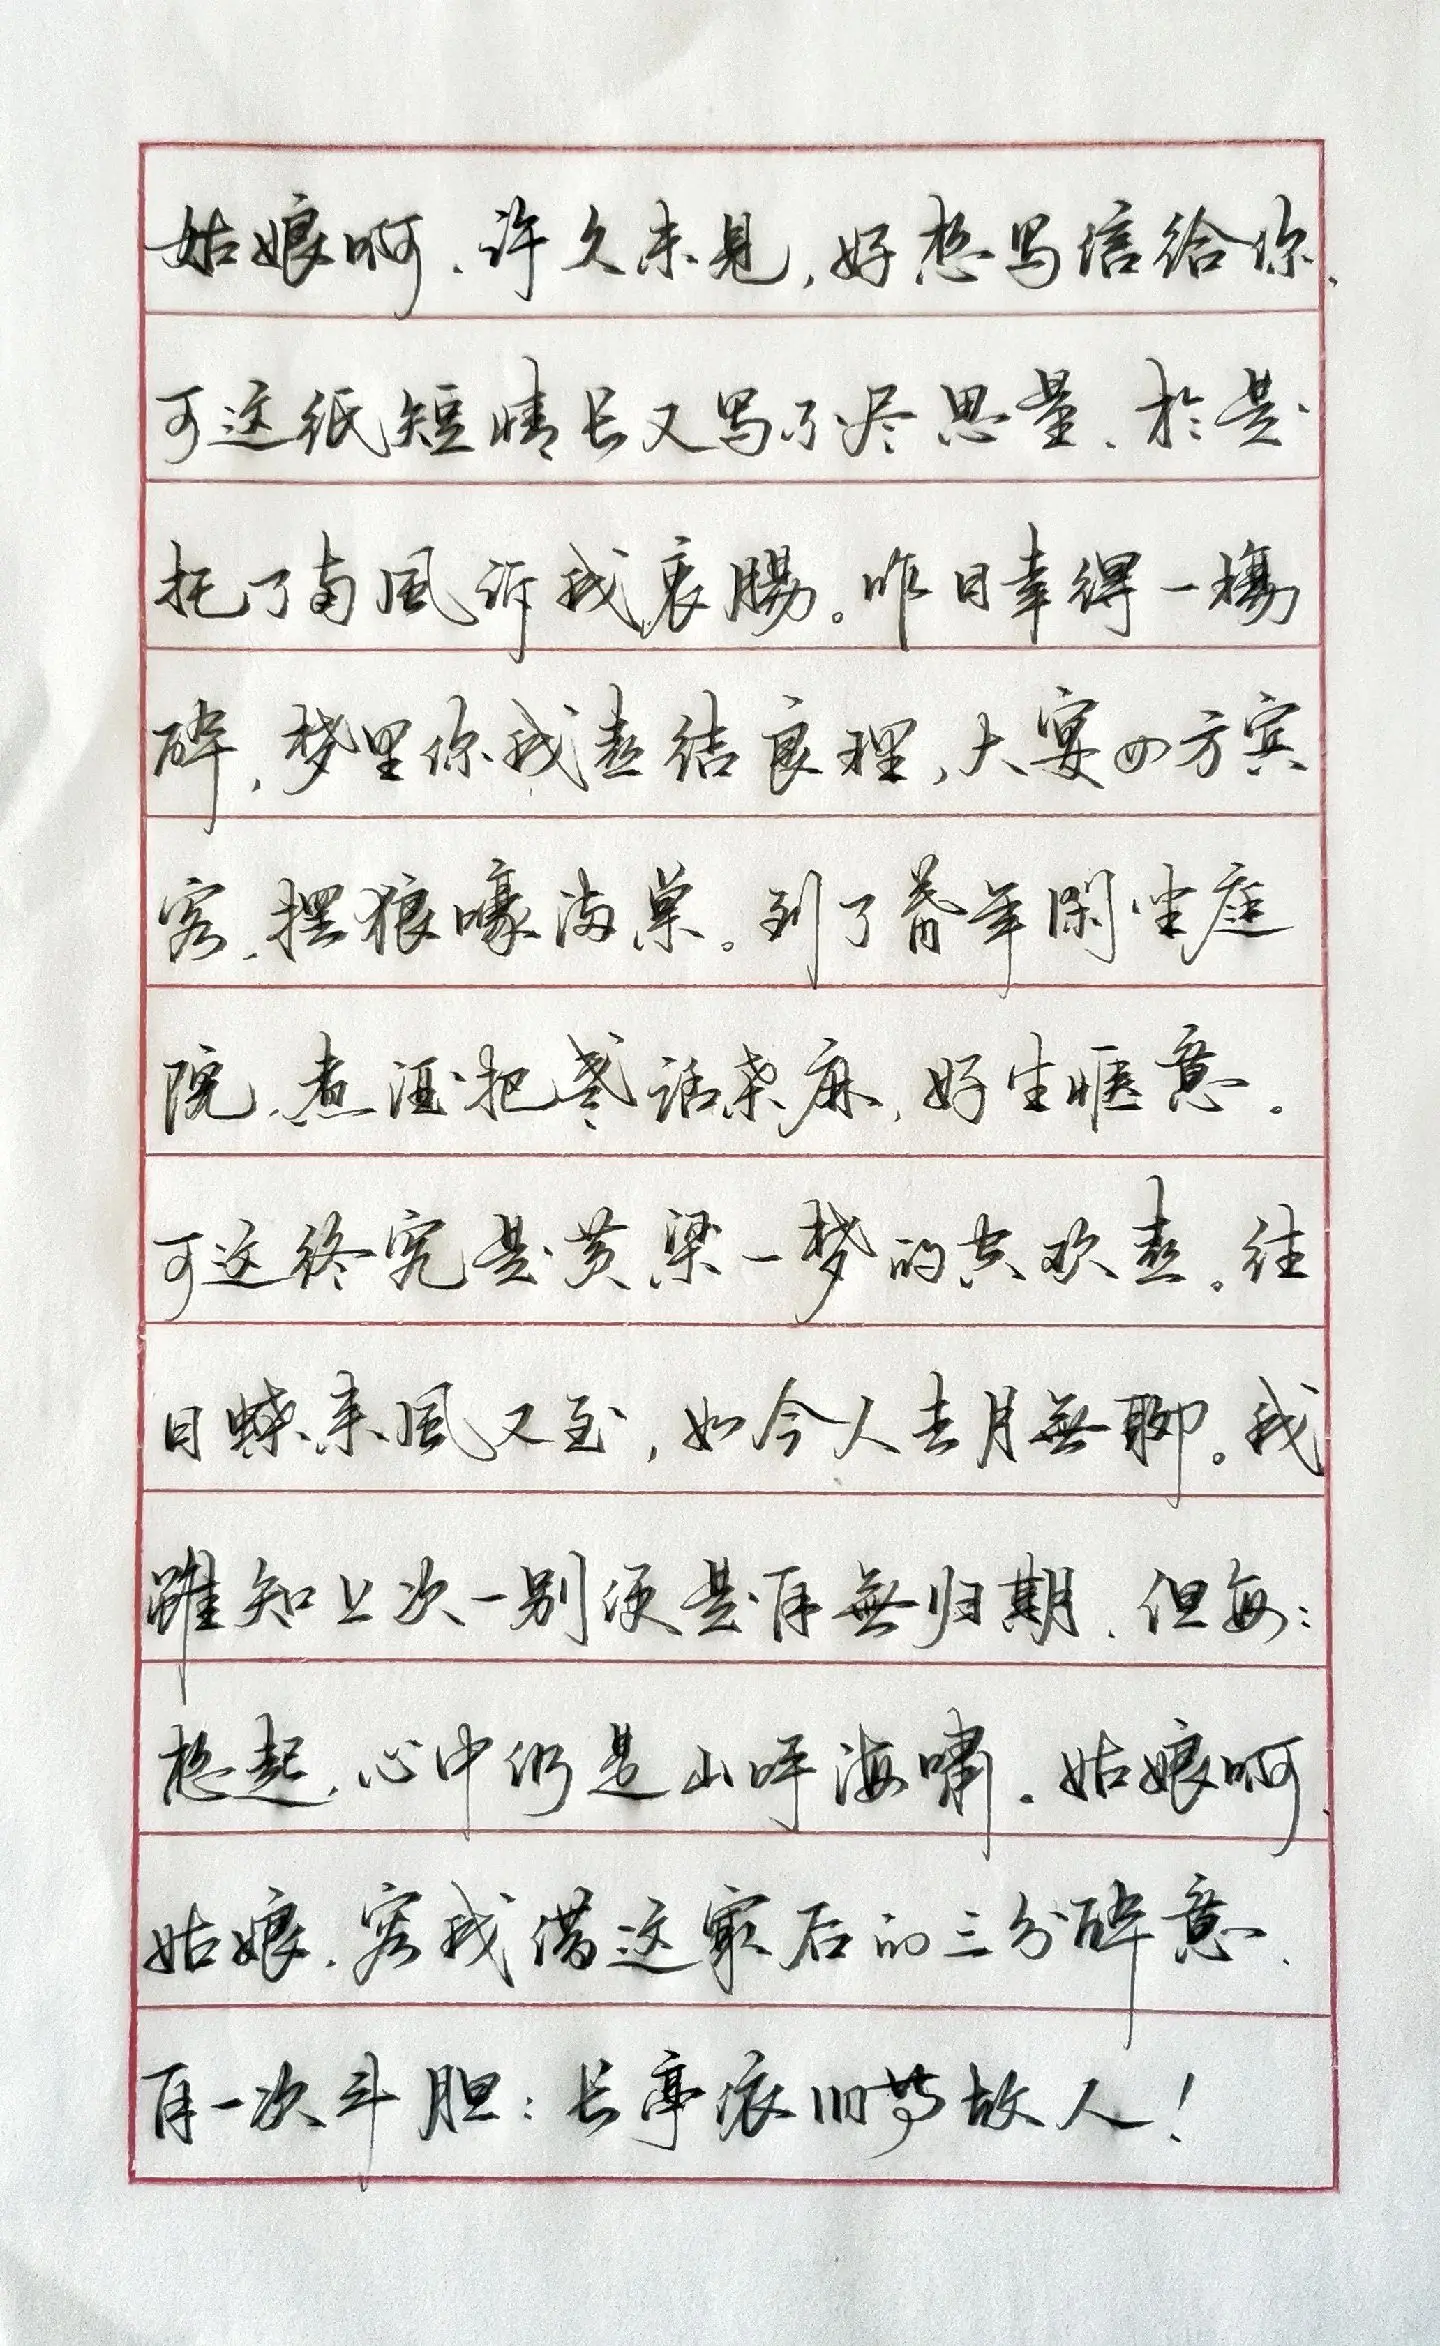 姑娘啊，许久未见，好想写信给你，
可这纸短情长又写不尽思量，於是
托了南風诉我衷腸。昨日幸得一場
醉，梦里你我喜结良理，大宴四方宾
客，摆狼嚎海巢。到了暮年閑坐庭
院，煮酒把盏话桑麻，好生惬意。
可这终究是黄粱一梦的空欢喜。往
日蝶来風又至，如今人去月無聊。我
雖知上次一别便是再無归期，但每：
想起，心中仍是山呼海嘯。姑娘啊，
姑娘，容我借这最后的三分醉意，
再一次斗胆：长亭依旧等故人！